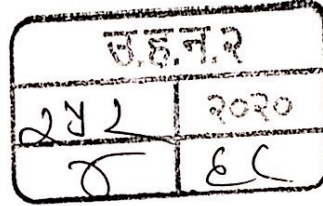 उ.ह.न.२
२५२ २०२०
४ ६८